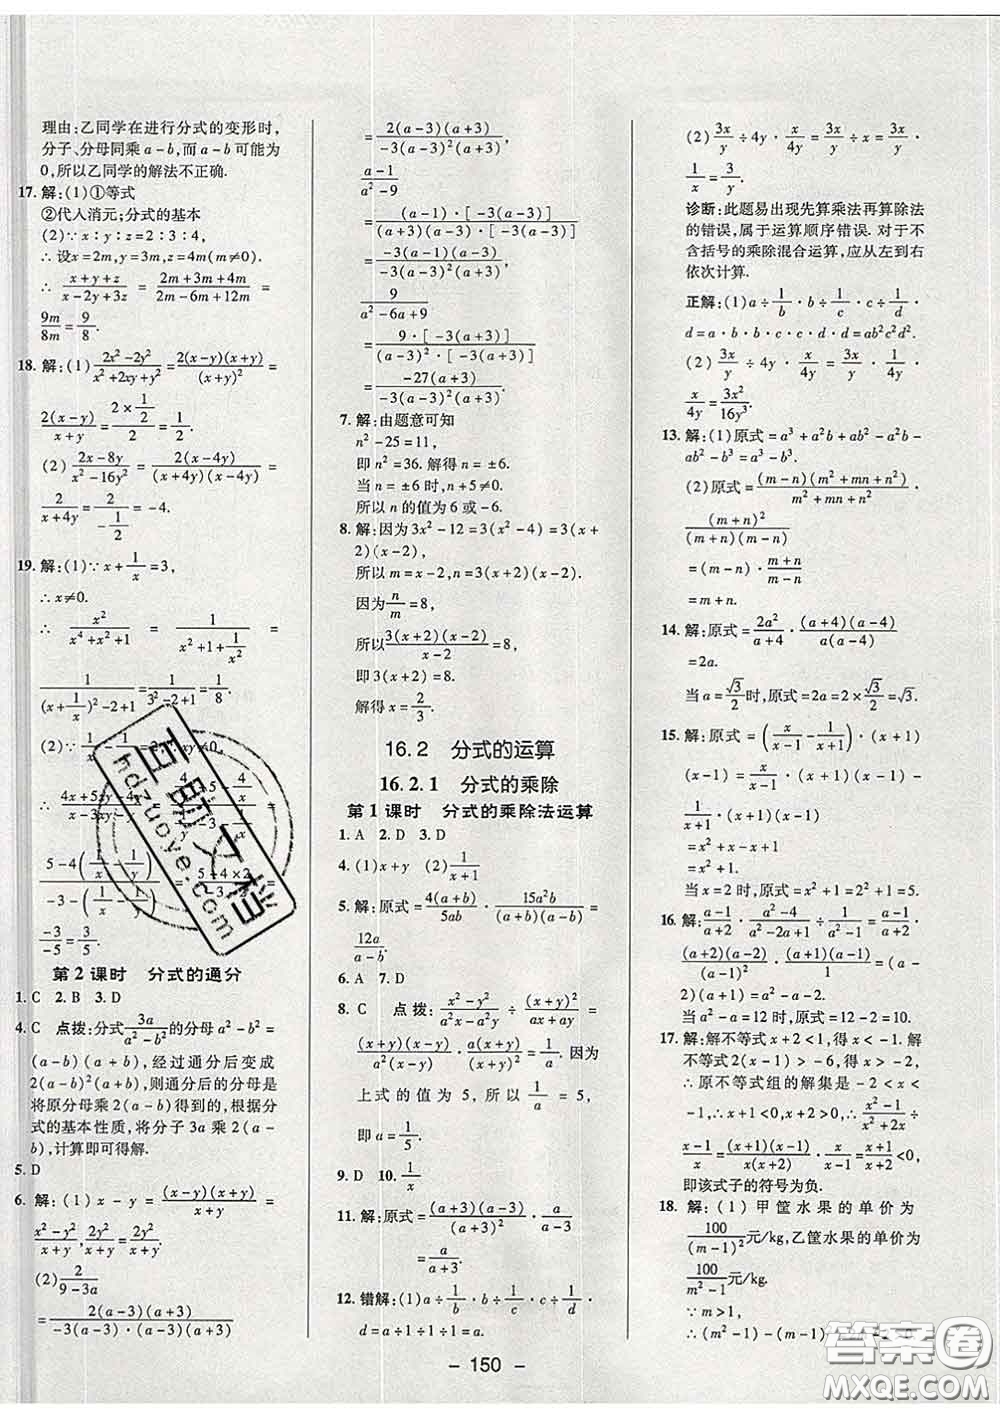 理由:乙同学在进行分式的变形时,
分子、分母同乘 a-b,而 a-b 可能为
0,所以乙同学的解法不正确.
17. 解:(1)①等式
②代入消元;分式的基本
(2)∵x:y:z=2:3:4,
∴设x=2m,y=3m,z=4m(m≠0).
∴ (x+y+z)/(x-2y+3z) = (2m+3m+4m)/(2m-6m+12m) =
9m/8m = 9/8.
18. 解:(1) (2x²-2y²)/(x²+2xy+y²) = 2(x-y)(x+y)/(x+y)² =
2(x-y)/(x+y) = (2×1/2)/2 = 1/2.
(2) (2x-8y)/(x²-16y²) = 2(x-4y)/((x+4y)(x-4y)) =
2/(x+4y) = 2/(-1/2) = -4.
19. 解:(1)∵x+1/x=3,
∴x≠0.
∴ x²/(x⁴+x²+1) = 1/(x²+1+1/x²) =
1/((x+1/x)²-2+1) = 1/(3²-2+1) = 1/8.
-3/-5 = 3/5.
第2课时 分式的通分
1. C 2. B 3. D
4. C 点拨:分式 3a/(a²-b²) 的分母 a²-b²=
(a-b)(a+b),经过通分后变成
2(a-b)²(a+b),则通分后的分母是
将原分母乘2(a-b)得到的,根据分
式的基本性质,将分子3a乘2(a-
b),计算即可得解.
5. D
6. 解:(1)x-y = (x-y)(x+y)/(x+y) =
(x²-y²)/(x+y), 2y²/(x+y) = 2y²/(x+y).
(2) 2/(9-3a)
= 2(a-3)(a+3)/(-3(a-3)·(a-3)(a+3))
= 2(a-3)(a+3)/(-3(a-3)²(a+3)),
(a-1)/(a²-9)
= (a-1)·[-3(a-3)]/((a+3)(a-3)·[-3(a-3)])
= -3(a-1)(a-3)/(-3(a-3)²(a+3)),
9/(a²-6a+9)
= 9·[-3(a+3)]/((a-3)²·[-3(a+3)])
= -27(a+3)/(-3(a-3)²(a+3)).
7. 解:由题意可知
n²-25=11,
即n²=36. 解得n=±6.
当n=±6时,n+5≠0.
所以n的值为6或-6.
8. 解:因为3x²-12=3(x²-4)=3(x+
2)(x-2),
所以m=x-2,n=3(x+2)(x-2).
因为 n/m =8,
所以 3(x+2)(x-2)/(x-2) =8,
即3(x+2)=8.
解得x=2/3.
16.2 分式的运算
16.2.1 分式的乘除
第1课时 分式的乘除法运算
1. A 2. D 3. D
4. (1)x+y (2) 1/(x+1)
5. 解:原式= 4(a+b)/5ab · 15a²b/((a+b)(a-b)) =
12a/(a-b).
6. A 7. D
8. C 点拨: (x²-y²)/(a²x-a²y) ÷ (x+y)²/(ax+ay) =
(x+y)(x-y)/(a²(x-y)) · a(x+y)/(x+y)² = 1/a. 因为
上式的值为5,所以 1/a =5,
即a=1/5.
9. D 10. 1/x
11. 解:原式= (a+3)(a-3)/(a+3)² · a/(a-3)
= a/(a+3).
12. 错解:(1)a÷1/b·b÷1/c·c÷1/d·
d=a÷1÷1÷1=a.
(2) 3x/y ÷4y· y/4y = 3x/y ÷x=
1/x = 3/y.
诊断:此题易出现先算乘法再算除法
的错误,属于运算顺序错误. 对于不
含括号的乘除混合运算,应从左到右
依次计算.
正解:(1)a÷1/b·b÷1/c·c÷1/d·
d=a·b·b·c·c·d·d=ab²c²d².
(2) 3x/y ÷4y· x/4y = 3x/y · 1/4y ·
x/4y = 3x²/16y³.
13. 解:(1)原式=a³+a²b+ab²-a²b-
ab²-b³=a³-b³.
(2)原式= (m-n)(m²+mn+n²)/(m²+mn+n²) ·
(m+n)²/((m+n)(m-n))
=(m-n)· (m+n)/(m-n)
=m+n.
14. 解:原式= 2a²/(a+4) · (a+4)(a-4)/(a(a-4))
=2a.
当a=√3/2时,原式=2a=2×√3/2=√3.
15. 解:原式=(x/(x-1) - x/(x+1))·
x/(x+1)·(x+1)(x-1)
=x²+x+x-x²
=2x.
当x=2时,原式=2x=4
16. (a-1)/(a+2) · (a²-4)/(a²-2a+1) ÷ 1/(a²-1) = (a-1)/(a+2) ·
(a+2)(a-2)/(a-1)² · (a+1)(a-1)=(a-
2)(a+1)=a²-a-2.
当a²-a=12时,原式=12-2=10.
17. 解:解不等式x+2<1,得x<-1.解
不等式2(x-1)>-6,得x>-2,
∴原不等式组的解集是-2<x<
-1,∴x+1<0,x+2>0,
即该式子的符号为负.
18. 解:(1)甲筐水果的单价为
100/(m-1)² 元/kg,乙筐水果的单价为
100/(m²-1) 元/kg.
∵m>1,
- 150 -
百助文档
hdzuoye.com
答案圈
MXQE.COM